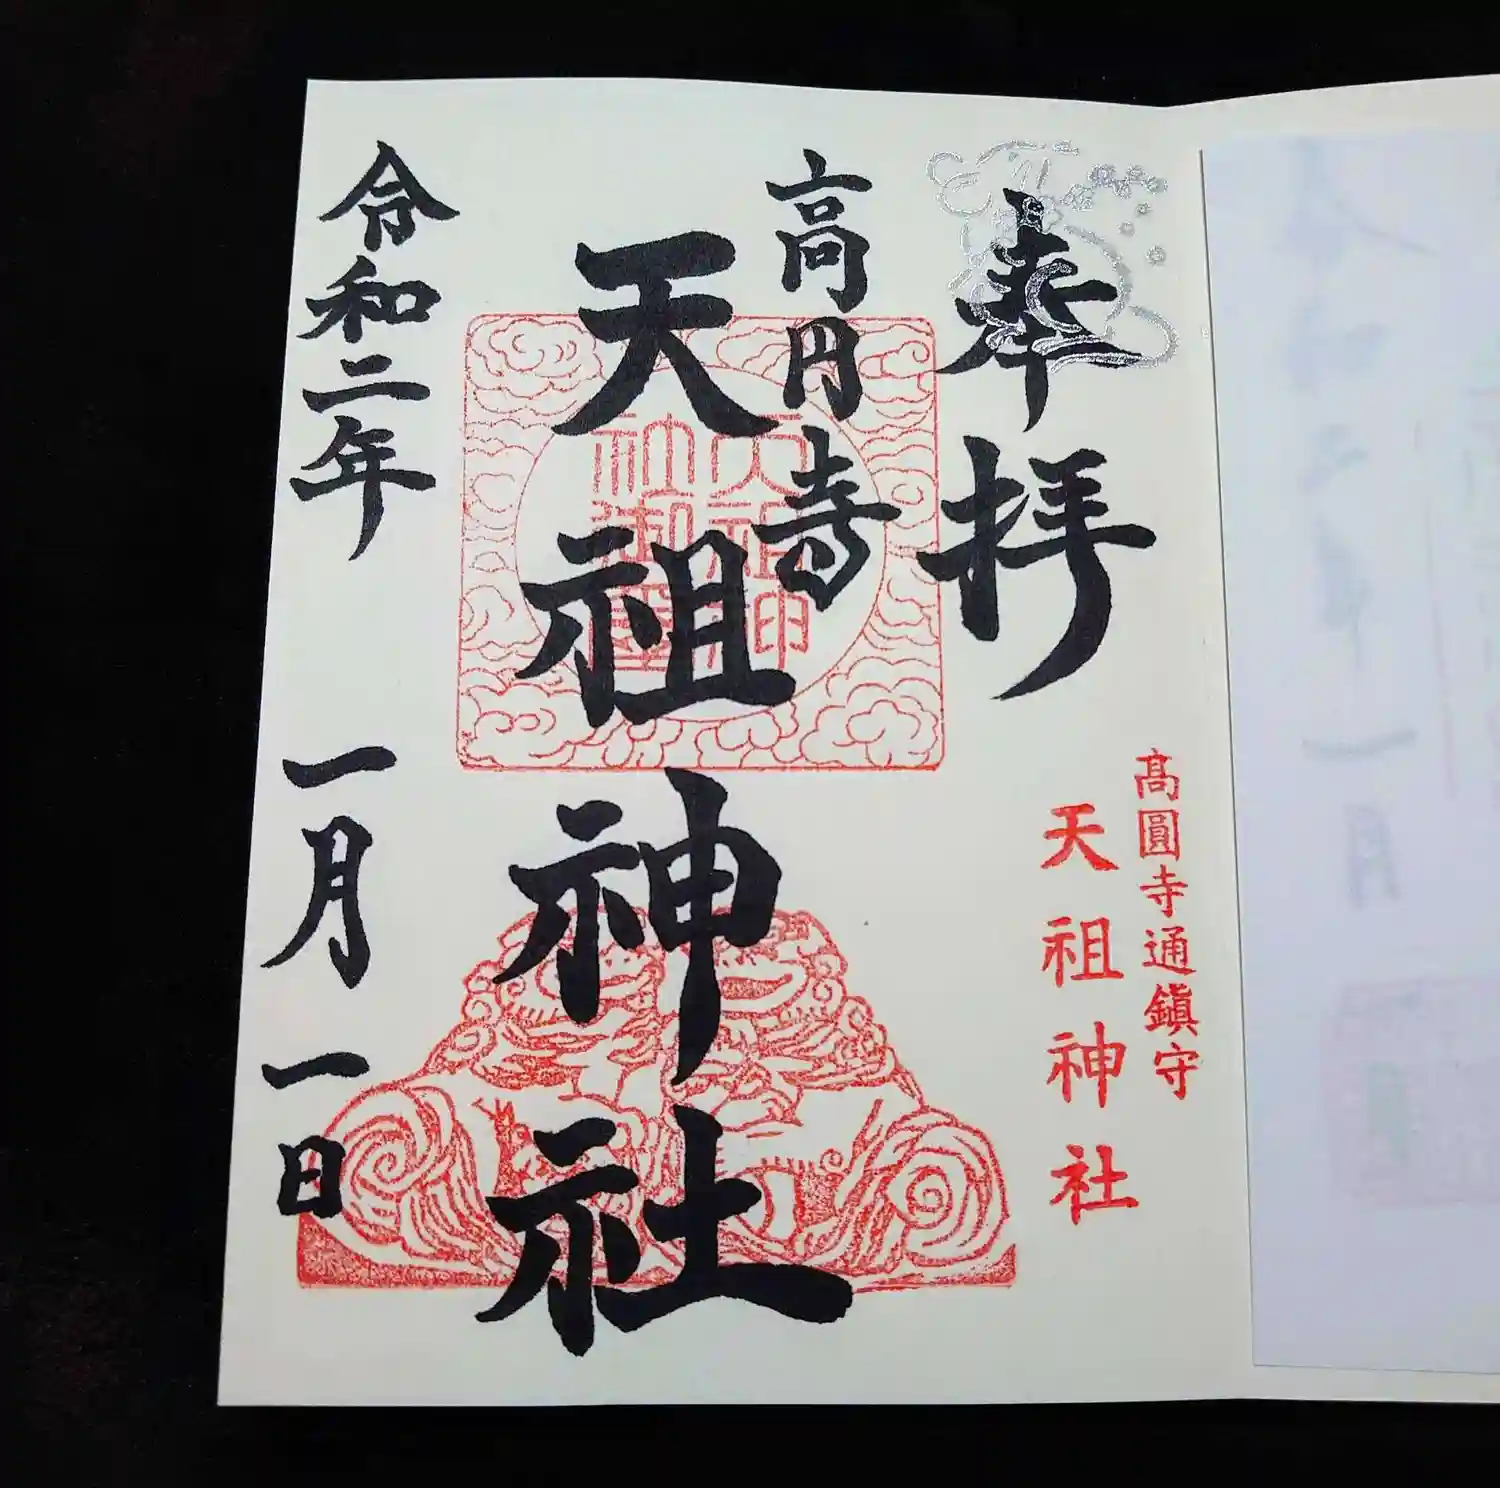 奉拝
髙圓寺通鎮守
天祖神社
高円寺
天祖神社
天祖神
社御璽
令和二年一月一日